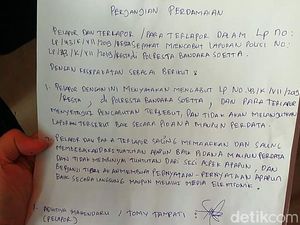 PERJANJIAN PERDAMAIAN
PELAPOR DAN TERLAPOR / PARA TERLAPOR DALAM LP NO:
LP/43/K/VII/2019/RESTA SEPAKAT MENCABUT LAPORAN POLISI NO:
LP/43/K/VII/2019/RESTA DI POLRESTA BANDARA SOETTA.
DENGAN KESEPAKATAN SEBAGAI BERIKUT:
1. PELAPOR DENGAN INI MENYATAKAN MENCABUT LP NO.43/K/VII/2019
/RESTA, di POLRESTA BANDARA SOETTA, DAN PARA TERLAPOR
MENYETUJUI PENCABUTAN TERSEBUT, DAN TIDAK AKAN MELANJUTKAN
LAPORAN TERSEBUT BAIK SECARA PIDANA MAUPUN PERDATA.
PELAPOR DAN PARA TERLAPOR SALING MEMAAFKAN DAN SALING
MEMBEBASKAN DARI TUNTUTAN APAPUN BAIK PIDANA MAUPUN PERDATA
DAN TIDAK MEMPUNYAI TUNTUTAN DARI SEGI ASPEK APAPUN, DAN
BERJANJI TIDAK AKAN MEMBUAT PERNYATAAN - PERNYATAAN APAPUN
BAIK SECARA LANGSUNG MAUPUN MELALUI MEDIA ELEKTRONIK.
1. / TOMY TAMPATI :
(PELAPOR)
detikcom